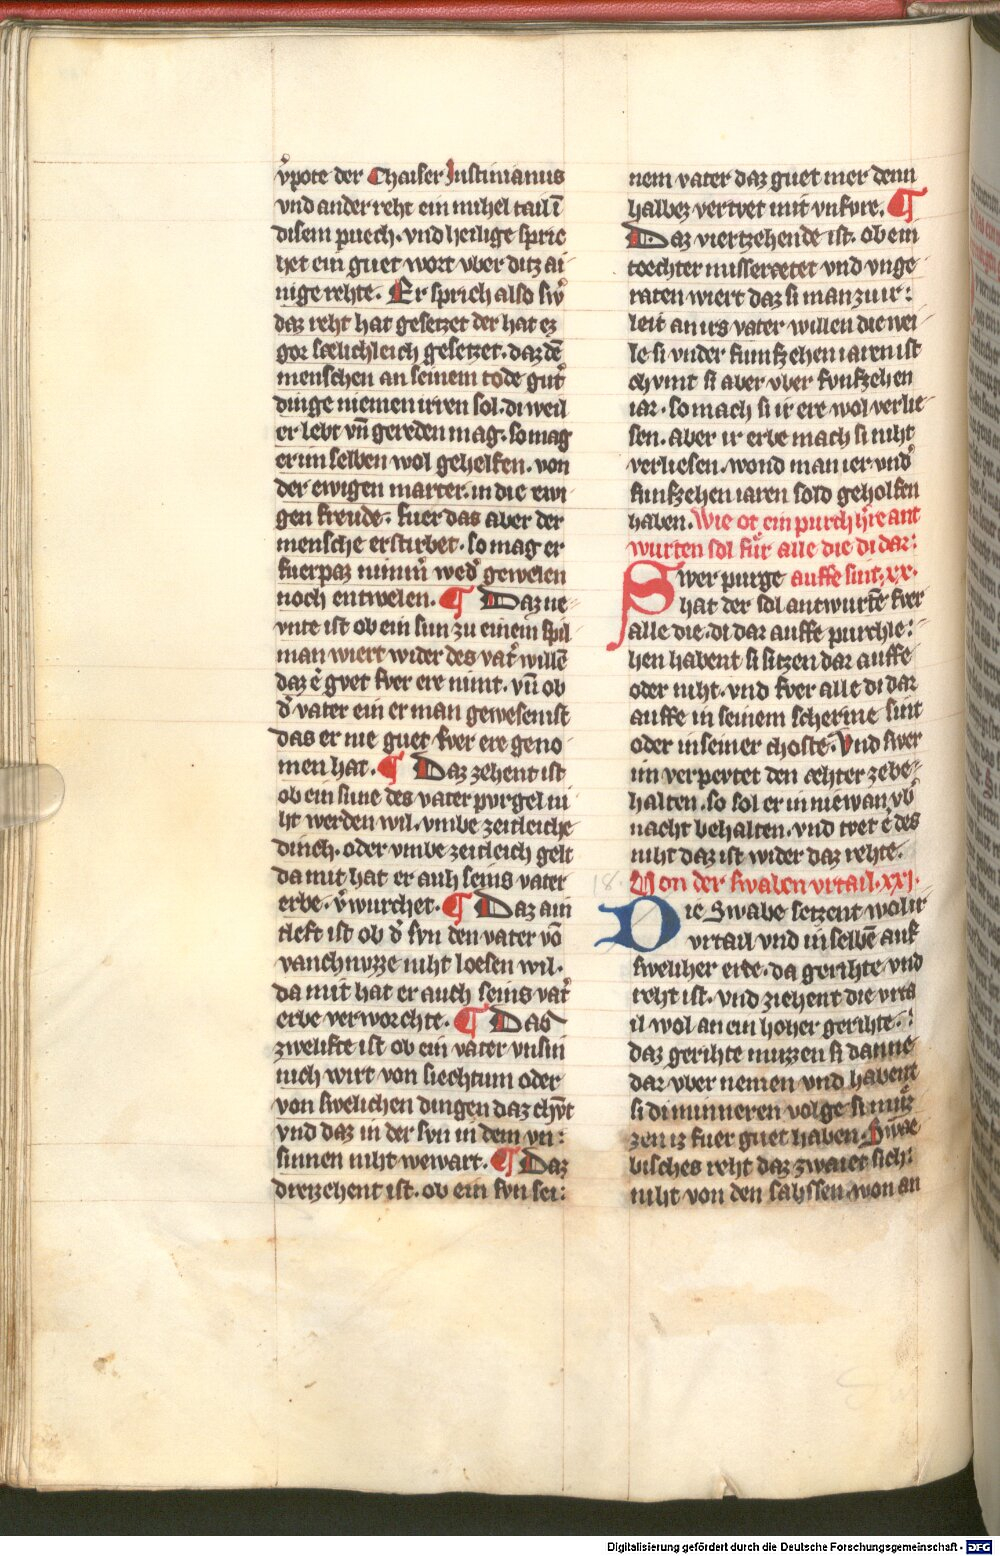 v̓pote der Chaiser Justinianus
vnd ander reht ein michel tail ī
disem puech. vnd heilige spric
het ein guet wort vber ditz ai
nige rehte. Er sprich also sw̓
daz reht hat gesetzet der hat ez
gor sælichleich gesetzet. daz dē
menschen an seinem tode gut̓
dinge niemen irren sol. di weil
er lebt vn̄ gereden mag. so mag
er im selben wol gehelfen. von
der ewigen marter. in die ewi
gen freude. fuer das aber der
mensche erstirbet. so mag er
fuerpaz nimm̓ wed̓ gewelen
noch entwelen. ¶ Daz ne
vnte ist ob ein sun zu einem spil
man wiert wider des vat̓ willē
daz e̓ gvet fver ere nimt. vn̄ ob
d̓ vater ein er man gewesen ist
das er nie guet fver ere geno
men hat. ¶ Daz zehent ist
ob ein sune des vater pvrgel ni
ht werden wil. vmbe zeitleiche
dinch. oder vmbe zeitleich gelt
da mit hat er auh seins vater
erbe. v̓wurchet. ¶ Daz ain
tleft ist ob d̓ svn den vater vō
vanchnvzze niht loesen wil.
da mit hat er auch seins vat̓
erbe verworchte. ¶ Das
zwelifte ist ob ein vater vnsin
nich wirt von siechtum oder
von swelichen dingen daz chv̄t
vnd daz in der svn in dem vn:
sinnen niht wewart. ¶ Daz
dreizehent ist. ob ein svn sei:
nem vater daz guet mer denn
halbez vertvet mit vnfvre. ¶
Daz viertzehende ist. ob ein
toechter missetretet vnd vnge
raten wiert daz si man zu ir:
leit an irs vater willen die wei
le si vnder funfzehen iaren ist
chvmt si aber vber fvnfzehen
iar. so mach si ir ere wol verlie
sen. aber ir erbe mach si niht
verliesen. wond man ier vnd̓
funfzehen iaren sold geholfen
haben. Wie ot ein purch h̓re ant
wurten sol fur alle die di dar:
Swer purge auffe sint. xx.
hat der sol antwurtē fver
alle die. di dar auffe purchle:
hen habent si sitzen dar auffe
oder niht. vnd fver alle di dar
auffe in seinem scherme sint
oder in seiner choste. Vnd swer
im verpertet den æhter zebe:
halten. so sol er in niewan vb̓
nacht behalten. vnd tvet e̓ des
niht daz ist wider daz rehte.
18. Von der swaben vrtail. xxi.
Die Swabe setzent wol ir
vrtail vnd in selbē auf
sweliher erde. da gerihte vnd
reht ist. vnd ziehent die vrta
il wol an ein hoher gerihte. :
daz gerihte muzzen si danne
dar vber nemen vnd habent
si di minneren volge si muͤz
zen iz fuer guet haben. Swae
bisches reht daz zwaiet sich:
niht von den sahssen. won an
Digitalisierung gefördert durch die Deutsche Forschungsgemeinschaft - DFG